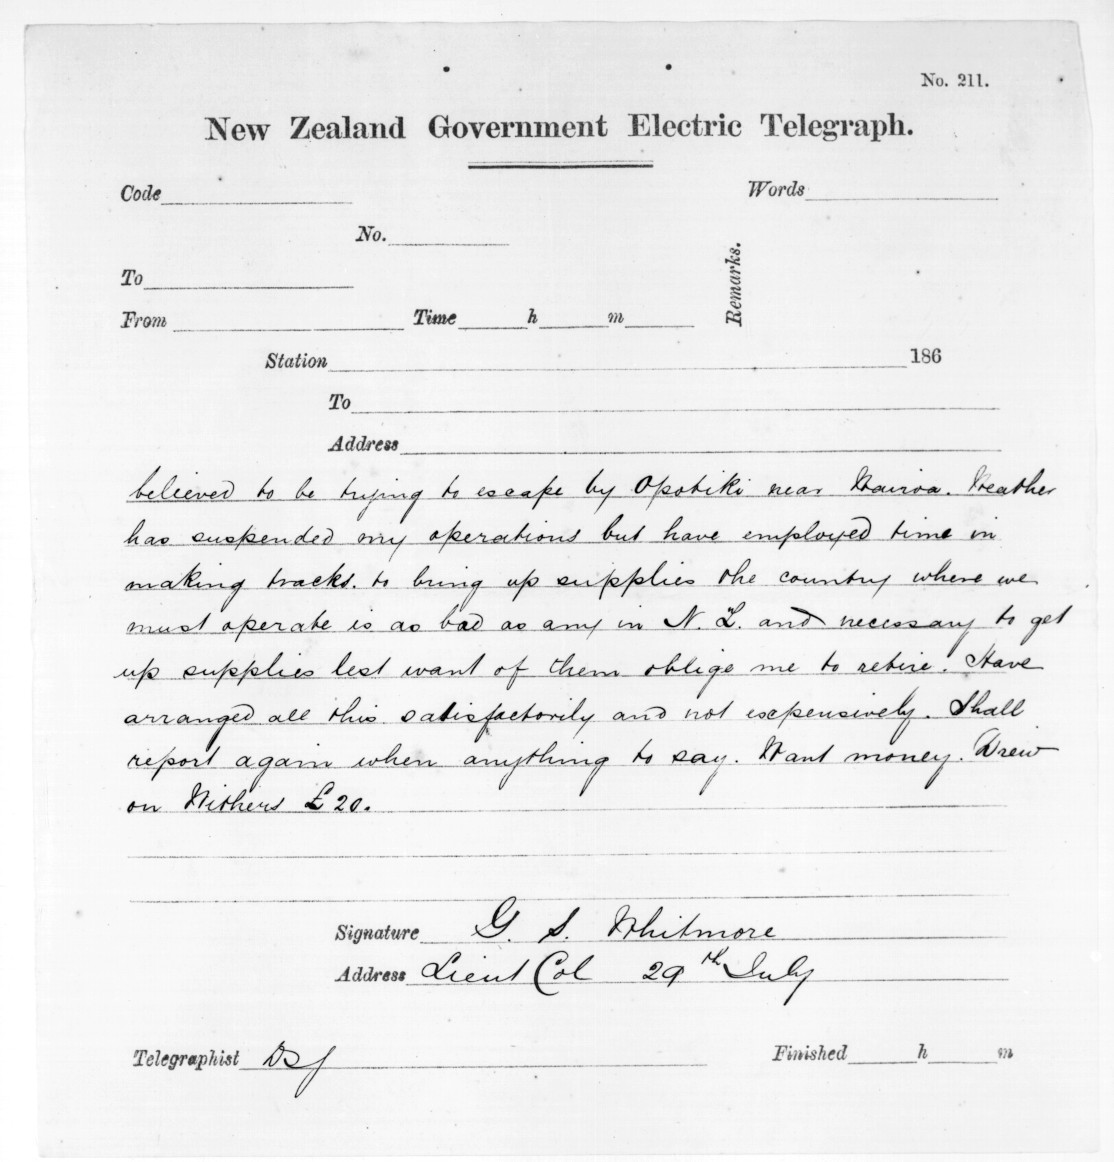 No. 211.
New Zealand Government Electric Telegraph.
Code Words
No.
To
From Time h m
Remarks.
Station 186
To
Address
believed to be trying to escape by Opotiki near Wairoa. Weather
has suspended my operations but have employed time in
making tracks to bring up supplies the country where we
must operate is as bad as any in N. Z. and necessary to get
up supplies lest want of them oblige me to retire. Have
arranged all this satisfactorily and not expensively. Shall
report again when anything to say. Want money. Drew
on Withers £20.
Signature G. S. Whitmore
Address Lieut Col 29th July
Telegraphist
Finished h m